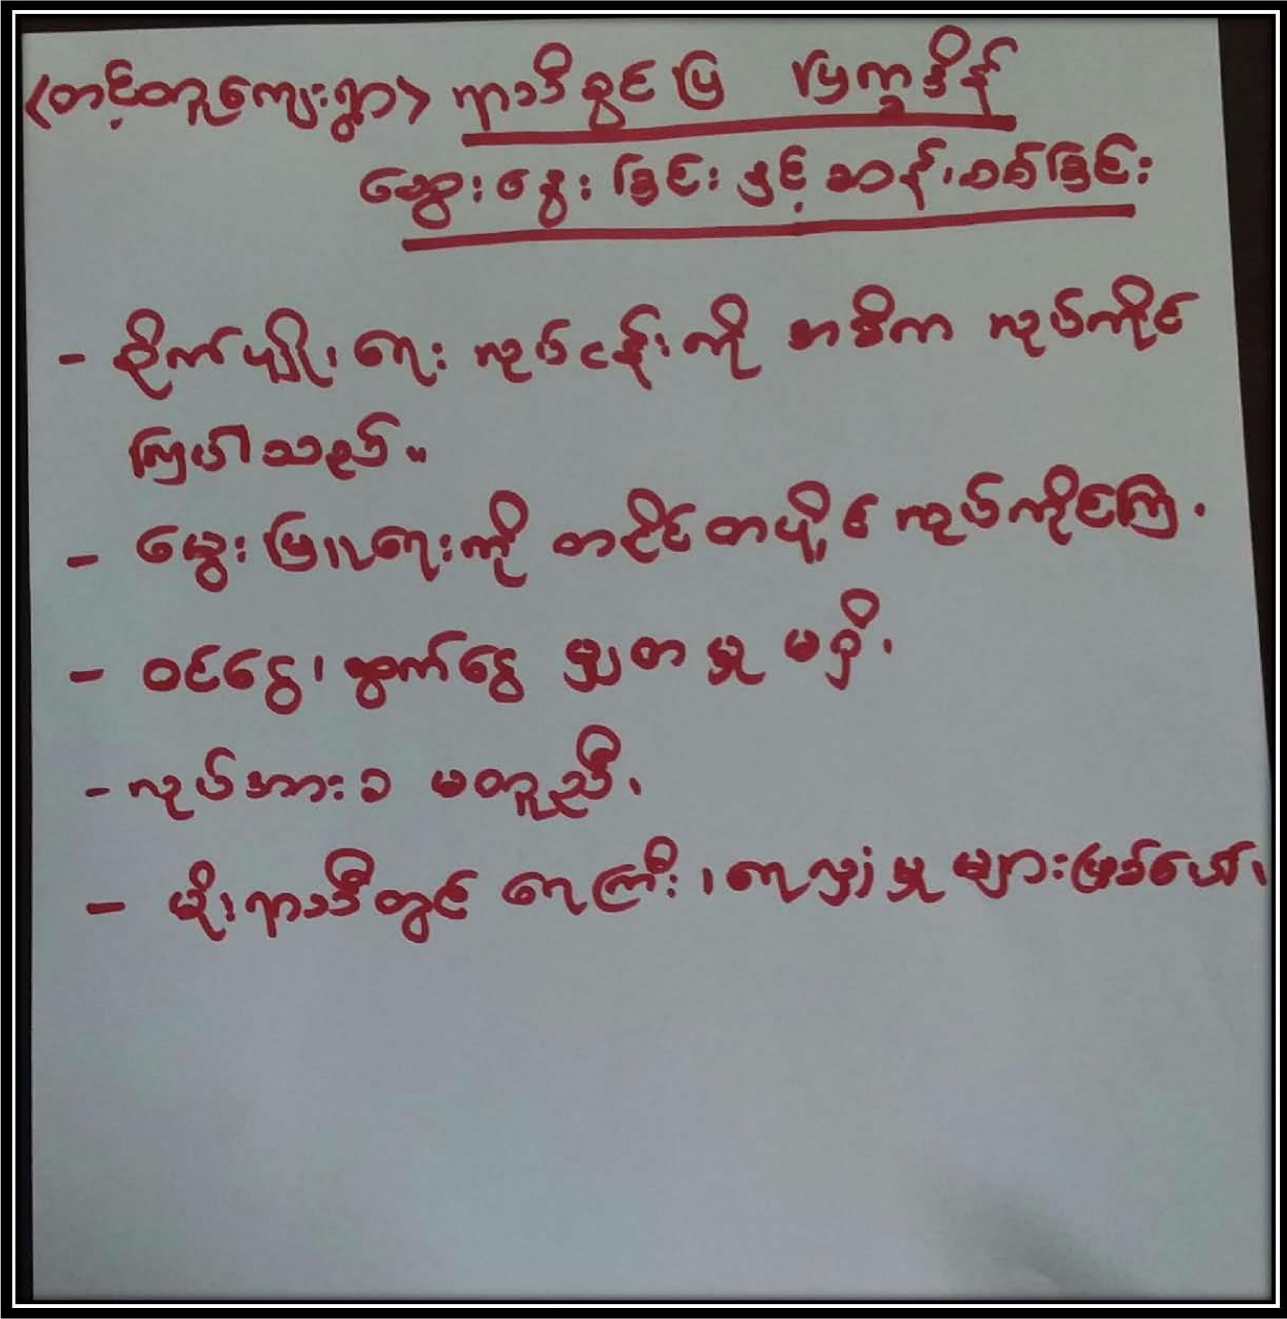 <တင့်တူကျေးရွာ> ရာသီခွင်ပြ ပြက္ခဒိန်
ဆွေးနွေးခြင်းနှင့် ဆန်းစစ်ခြင်း
- စိုက်ပျိုးရေး လုပ်ငန်းကို အဓိက လုပ်ကိုင်
ကြပါသည်။
- မွေးမြူရေးကို တနိုင်တပိုင် လုပ်ကိုင်ကြ၊
- ဝင်ငွေ၊ ထွက်ငွေ မျှတမှု မရှိ၊
- လုပ်အားခ မတူညီ၊
- မိုးရာသီတွင် ရေကြီး၊ ရေလျှံမှု များဖြစ်ပေါ်၊